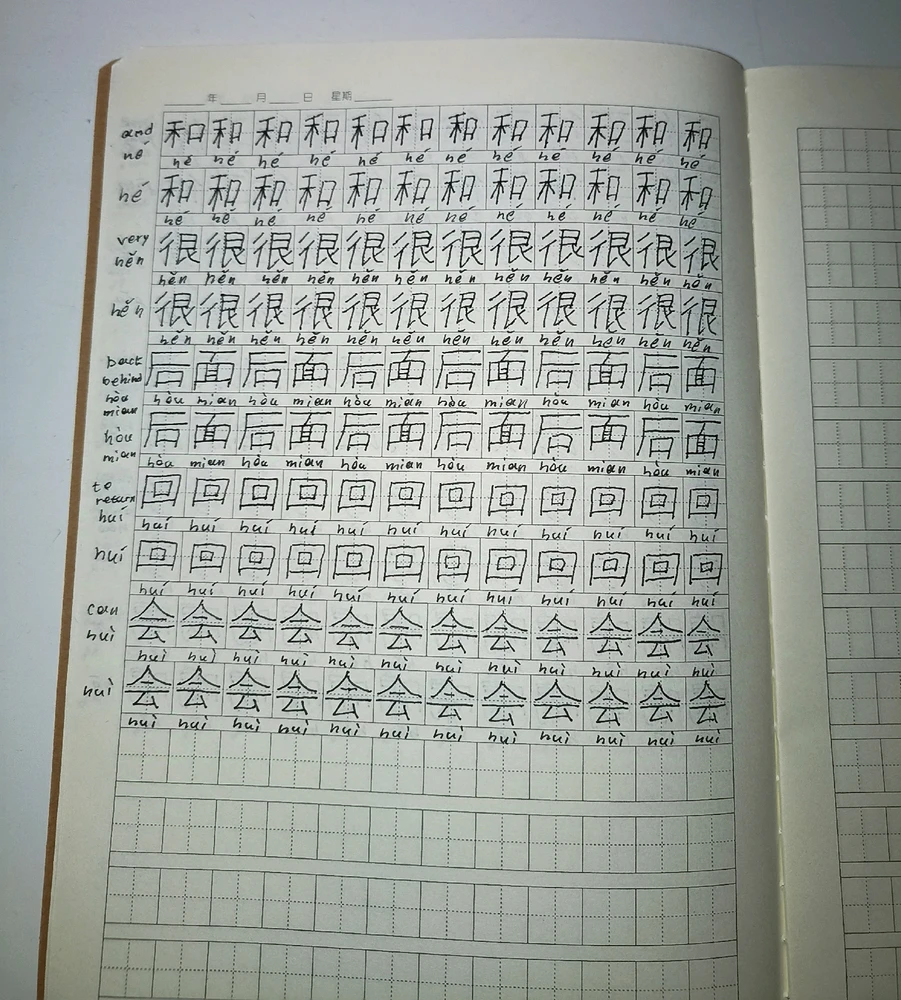 年 月 日 星期
and 和 和 和 和 和 和 和 和 和 和 和 和
hé hé hé hé hé hé hé hé hé hé hé hé hé
hé 和 和 和 和 和 和 和 和 和 和 和 和
hé hé hé hé hé hé hé hé hé hé hé hé
very 很 很 很 很 很 很 很 很 很 很 很 很
hěn hěn hěn hěn hěn hěn hěn hěn hěn hěn hěn hěn hěn
hěn 很 很 很 很 很 很 很 很 很 很 很 很
hěn hěn hěn hěn hěn hěn hěn hěn hěn hěn hěn hěn
back behind 后 面 后 面 后 面 后 面 后 面 后 面
hòu mian hòu mian hòu mian hòu mian hòu mian hòu mian hòu mian
hòu mian 后 面 后 面 后 面 后 面 后 面 后 面
hòu mian hòu mian hòu mian hòu mian hòu mian hòu mian
to return 回 回 回 回 回 回 回 回 回 回 回 回
huí huí huí huí huí huí huí huí huí huí huí huí huí
huí 回 回 回 回 回 回 回 回 回 回 回 回
huí huí huí huí huí huí huí huí huí huí huí huí
can 会 会 会 会 会 会 会 会 会 会 会 会
huì huì huì huì huì huì huì huì huì huì huì huì huì
huì 会 会 会 会 会 会 会 会 会 会 会 会
huì huì huì huì huì huì huì huì huì huì huì huì